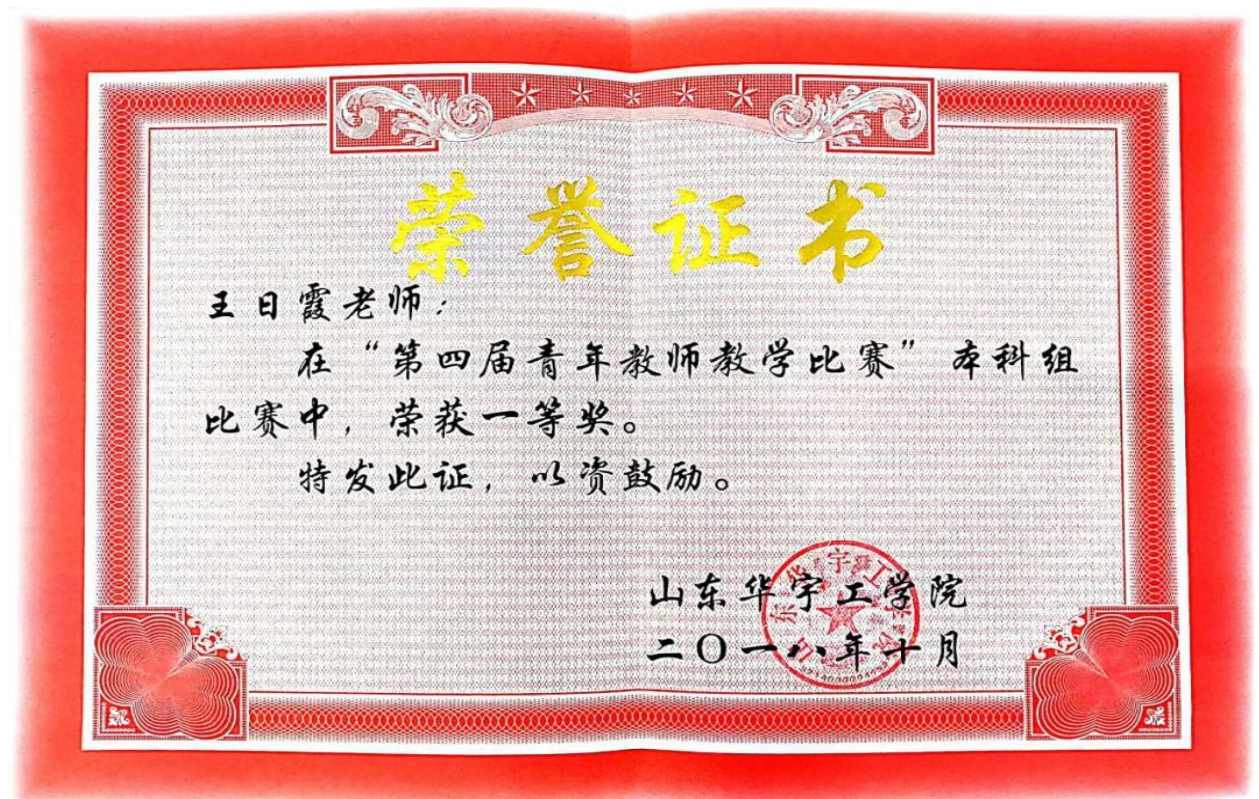 荣誉证书
王日霞老师：
在“第四届青年教师教学比赛”本科组
比赛中，荣获一等奖。
特发此证，以资鼓励。
山东华宇工学院
二〇一八年十月